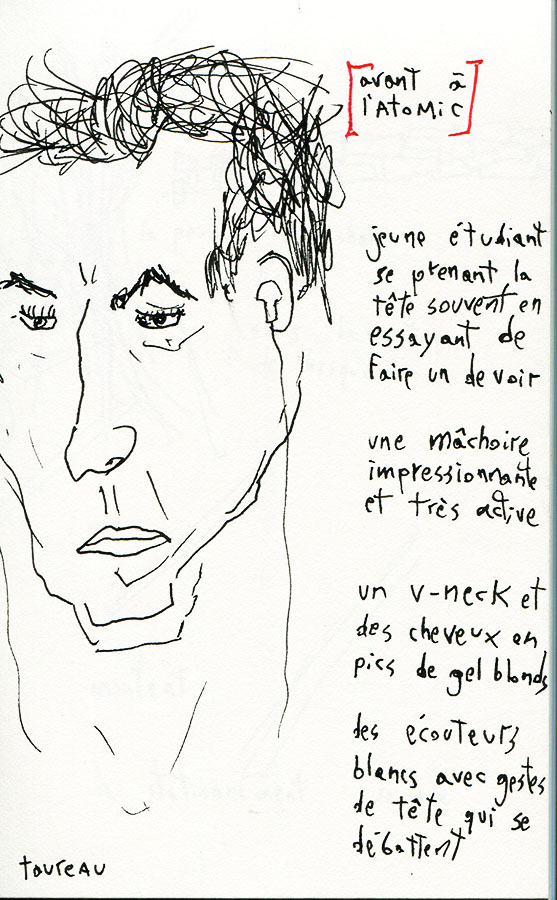 avant à
l'Atomic
jeune étudiant
se prenant la
tête souvent en
essayant de
faire un devoir
une mâchoire
impressionnante
et très active
un v-neck et
des cheveux en
pics de gel blonds
des écouteurs
blancs avec gestes
de tête qui se
débattent
toureau